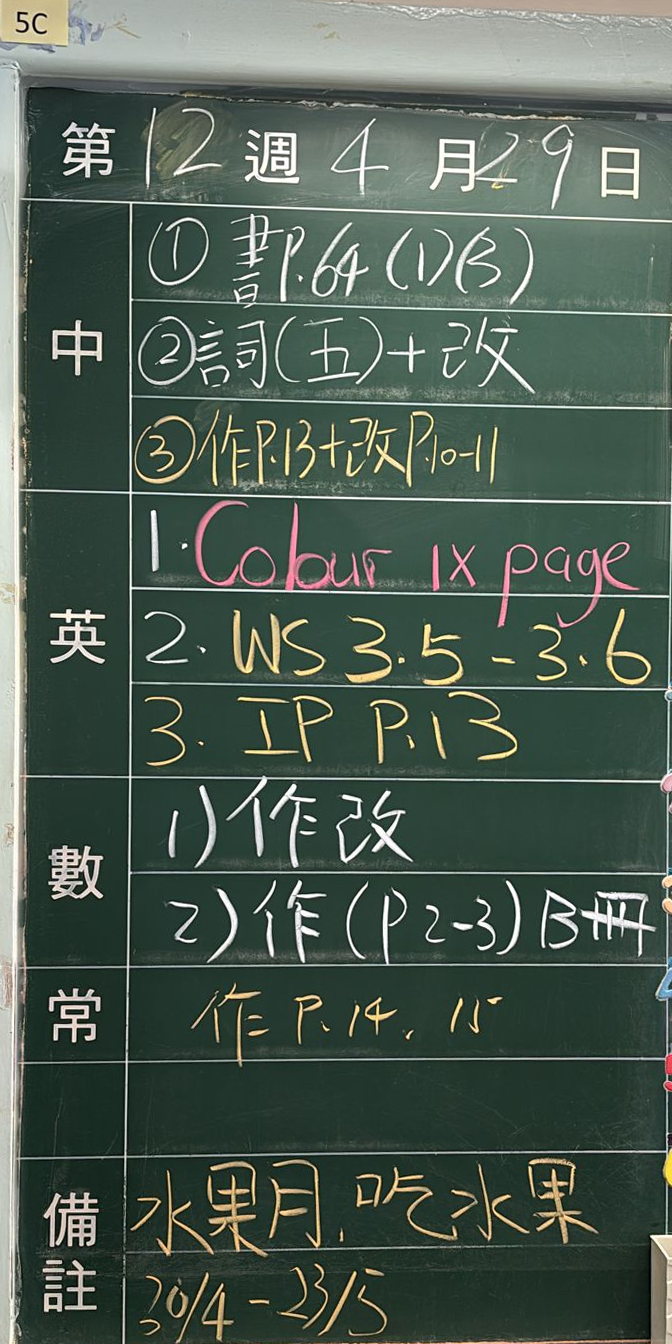 5C
第 12 週 4 月 29 日
中
① 書P.64 (1)(3)
② 詞(五)+改
③ 作P.13+改P.10-11
英
1. Colour 1x page
2. WS 3.5 - 3.6
3. IP P.13
數
1) 作改
2) 作 (P 2-3) B冊
常
作 P. 14, 15
備註
水果月,吃水果
30/4 - 23/5